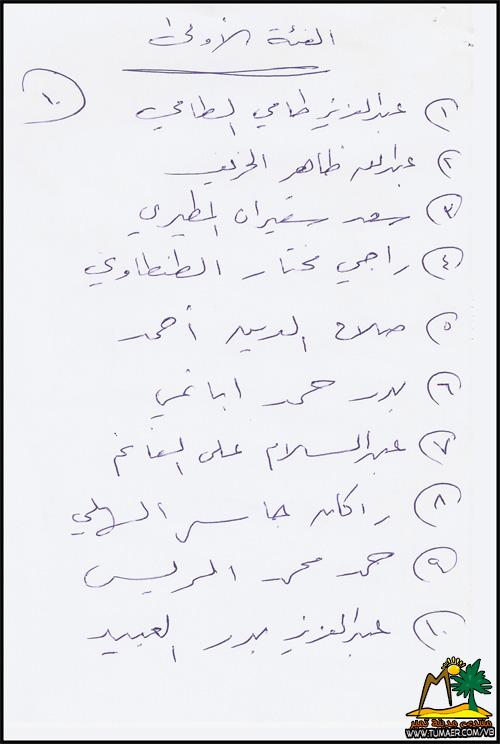 الفئة الأولى
١٠
١ عبدالعزيز طامي الطامي
٢ عبدالله ظاهر
٣ سعد سفيران المطيري
٤ راجي مختار الطنطاوي
٥ صلاح الدين أحمد
٦ بدر حمد ابانمي
٧ عبدالسلام علي الغانم
٨ راكان جاسر السهلي
٩ حمد محمد
١٠ عبدالعزيز بدر العبيد
منتدى مدينة تمير
WWW.TUMAER.COM/VB